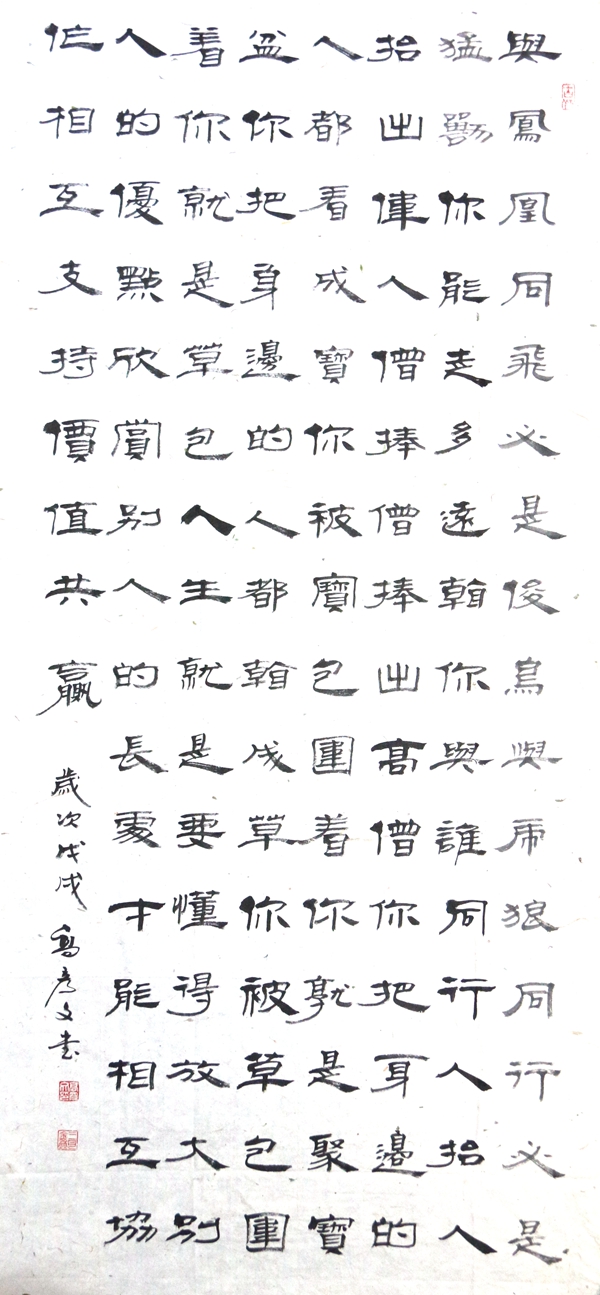 與鳳凰同飛必是俊鳥與虎狼同行必是
猛獸你能走多遠翰你與誰同行人抬人
抬出偉人僧捧僧捧出高僧你把耳邊的
人都看成寶你被寶包圍着你就是聚寶
盆你把身邊的人都翰成草你被草包圍
着你就是草包人生就是要懂得放大別
人的優點欣賞別人的長處才能相互協
作相互支持價值共贏
歲次戊戌 彥文書